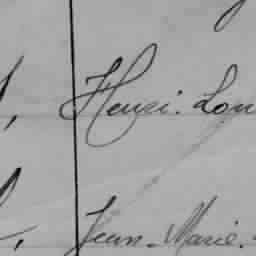 Henri. Lou
Jean-Marie.